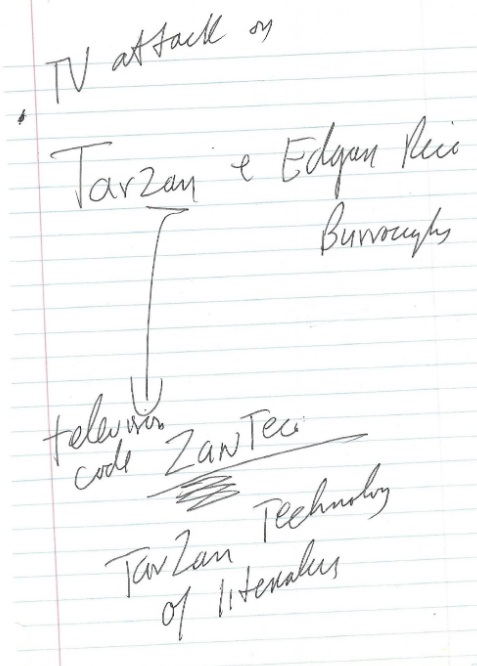 TV attack on
Tarzan e Edgar Rice
Burroughs
television
code ZanTec
TarZan Technology
of literature